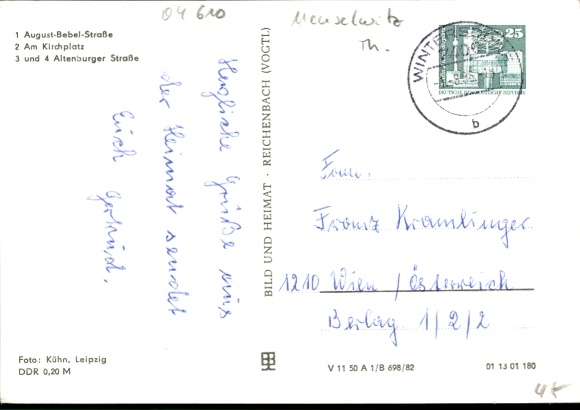 04 610
Meuselwitz
Th.
1 August-Bebel-Straße
2 Am Kirchplatz
3 und 4 Altenburger Straße
Herzliche Grüße aus
der Heimat sendet
Euch Gertrud.
BILD UND HEIMAT · REICHENBACH (VOGTL)
25
DEUTSCHE DEMOKRATISCHE REPUBLIK
b
Fam.
Franz Kramlinger
1210 Wien / Österreich
Berlag. 1/2/2
Foto: Kühn, Leipzig
DDR 0,20 M
V 11 50 A 1/B 698/82
01 13 01 180